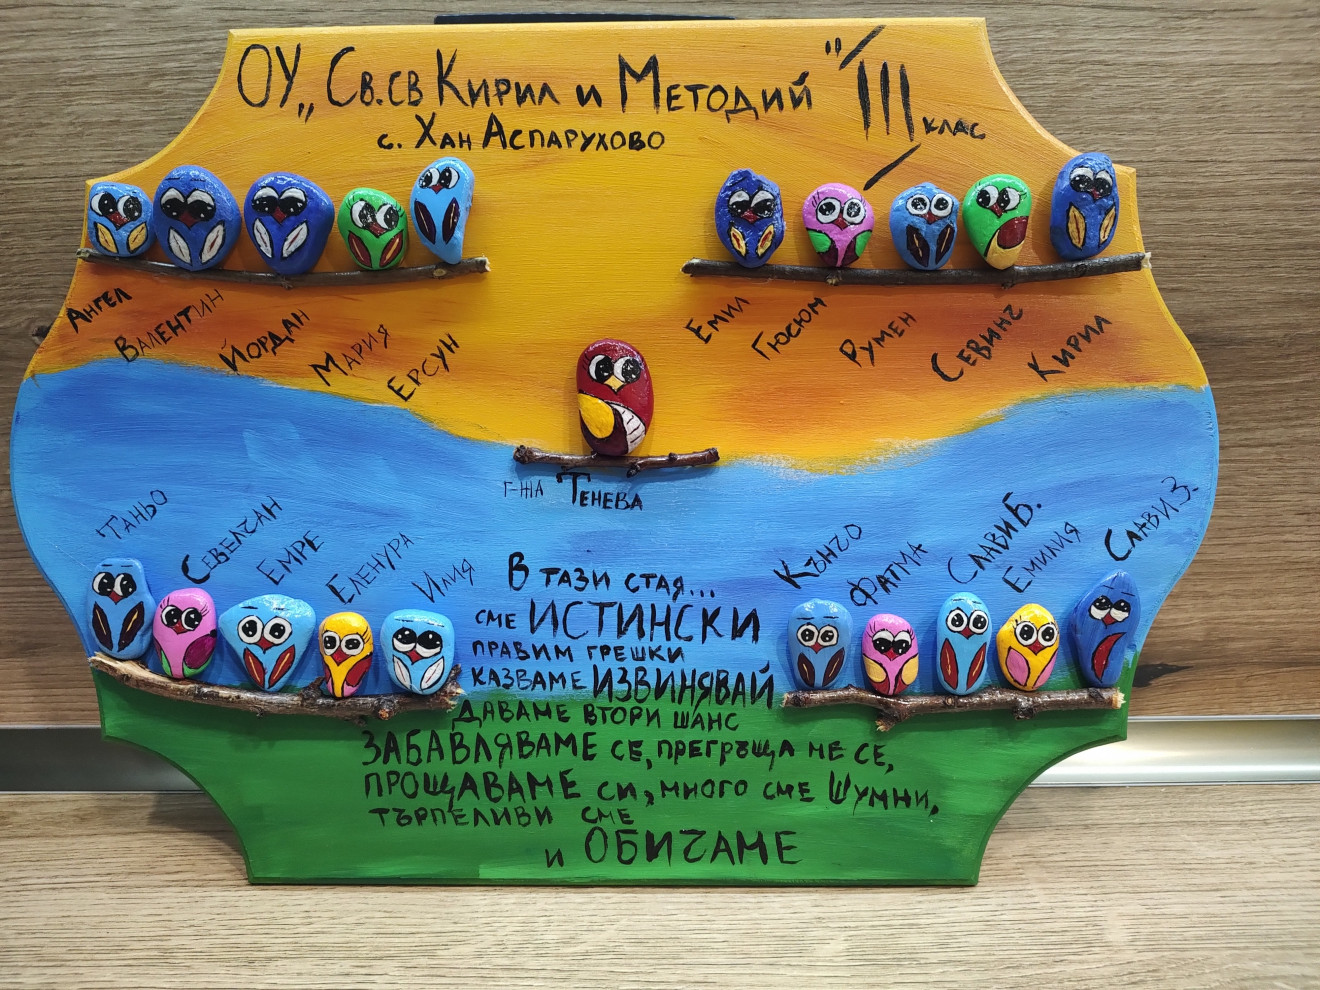 ОУ „Св.св Кирил и Методий" III клас
с. Хан Аспарухово
Ангел Валентин Йордан Мария Ерсун
Емил Гюсюм Румен Севинч Кирил
г-жа Тенева
Таньо Севелчан Емре Еленура Илия
Кънчо Фатма Слави Б. Емилия Слави З.
В тази стая...
сме ИСТИНСКИ
правим грешки
казваме ИЗВИНЯВАЙ
даваме втори шанс
ЗАБАВЛЯВАМЕ се, прегръща ме се,
ПРОЩАВАМЕ си, много сме Шумни,
търпеливи сме
и ОБИЧАМЕ